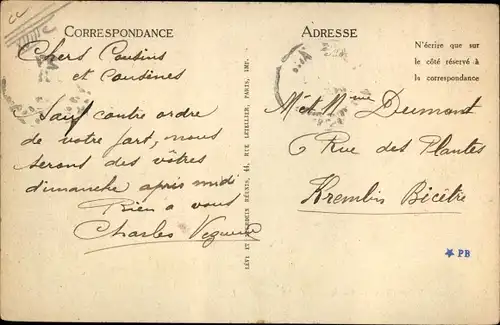 CORRESPONDANCE
Chers Cousins
et Cousines
Sauf contre ordre
de votre part, nous
serons des vôtres
dimanche après midi
Rien a vous
Charles
LÉVY ET NEURDEIN RÉUNIS, 44, RUE LETELLIER, PARIS, IMP.
ADRESSE
N'écrire que sur
le côté réservé à
la correspondance
Mr et Mme Dumont
6 Rue des Plantes
Kremlin Bicêtre
PB